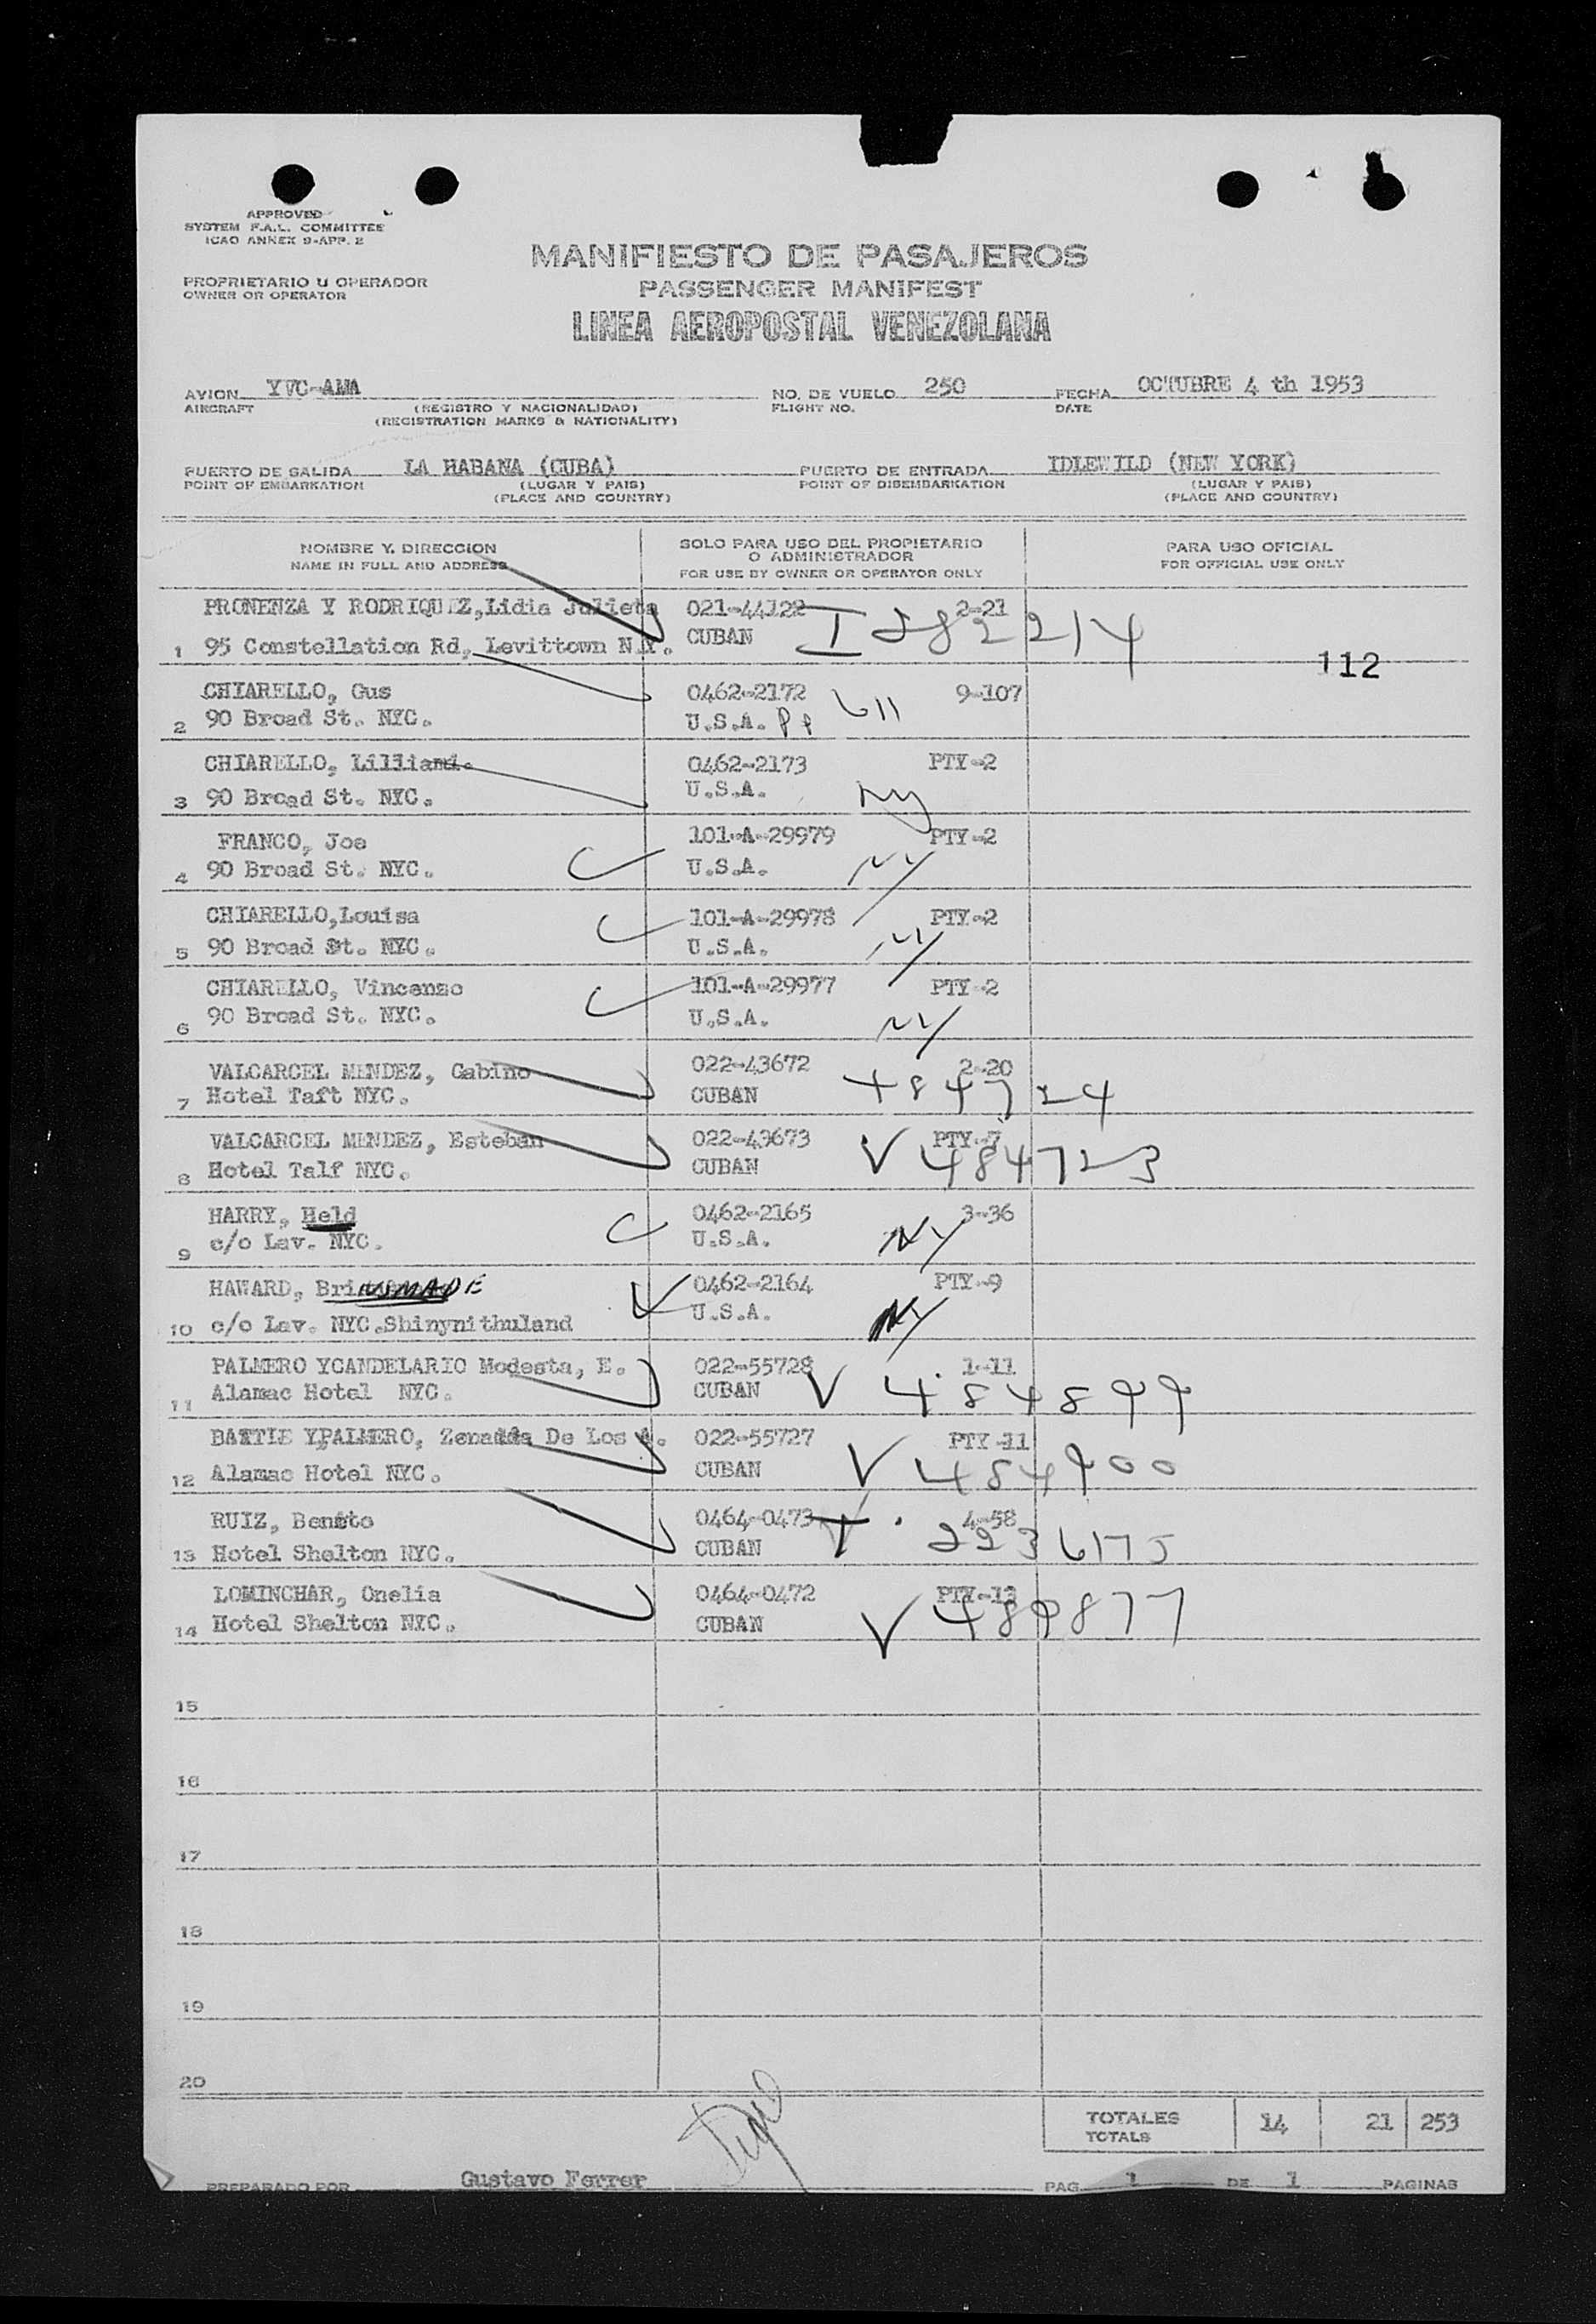 APPROVED
SYSTEM F.A.L. COMMITTEE
ICAO ANNEX 9-APP. 2
MANIFIESTO DE PASAJEROS
PROPRIETARIO U OPERADOR
OWNER OR OPERATOR
PASSENGER MANIFEST
LINEA AEROPOSTAL VENEZOLANA
AVION YVC-AMA NO. DE VUELO 250 FECHA OCTUBRE 4 th 1953
AIRCRAFT (REGISTRO Y NACIONALIDAD) FLIGHT NO. DATE
(REGISTRATION MARKS & NATIONALITY)
PUERTO DE SALIDA LA HABANA (CUBA) PUERTO DE ENTRADA IDLEWILD (NEW YORK)
POINT OF EMBARKATION (LUGAR Y PAIS) POINT OF DISEMBARKATION (LUGAR Y PAIS)
(PLACE AND COUNTRY) (PLACE AND COUNTRY)
NOMBRE Y. DIRECCION SOLO PARA USO DEL PROPIETARIO O ADMINISTRADOR PARA USO OFICIAL
NAME IN FULL AND ADDRESS FOR USE BY OWNER OR OPERATOR ONLY FOR OFFICIAL USE ONLY
PRONENZA Y RODRIQUEZ,Lidia Julieta 021-44122 2-21
1 95 Constellation Rd, Levittown N.Y. CUBAN I 282214
112
CHIARELLO, Gus 0462-2172 9-107
2 90 Broad St. NYC. U.S.A. PP 611
CHIARELLO, Lilliam. 0462-2173 PTY-2
3 90 Broad St. NYC. U.S.A. NY
FRANCO, Joe 101-A-29979 PTY-2
4 90 Broad St. NYC. U.S.A. NY
CHIARELLO,Louisa 101-A-29978 PTY-2
5 90 Broad St. NYC. U.S.A. NY
CHIARELLO, Vincenzo 101-A-29977 PTY-2
6 90 Broad St. NYC. U.S.A. NY
VALCARCEL MENDEZ, Gabino 022-43672 2-20
7 Hotel Taft NYC. CUBAN 484724
VALCARCEL MENDEZ, Esteban 022-43673 PTY-7
8 Hotel Talf NYC. CUBAN V 484723
HARRY, Held 0462-2165 3-36
9 c/o Lav. NYC. U.S.A. NY
HAWARD, BrinSMADE 0462-2164 PTY-9
10 c/o Lav. NYC.Shinynithuland U.S.A. NY
PALMERO YCANDELARIO Modesta, E. 022-55728 1-11
11 Alamac Hotel NYC. CUBAN V 484899
BATTLE YPALMERO, Zenaida De Los A. 022-55727 PTY-11
12 Alamac Hotel NYC. CUBAN V 484900
RUIZ, Benito 0464-0473 4-58
13 Hotel Shelton NYC. CUBAN 2236175
LOMINCHAR, Onelia 0464-0472 PTY-13
14 Hotel Shelton NYC. CUBAN V 489877
15
16
17
18
19
20
TOTALES 14 21 253
TOTALS
PREPARADO POR Gustavo Ferrer PAG. 1 DE 1 PAGINAS